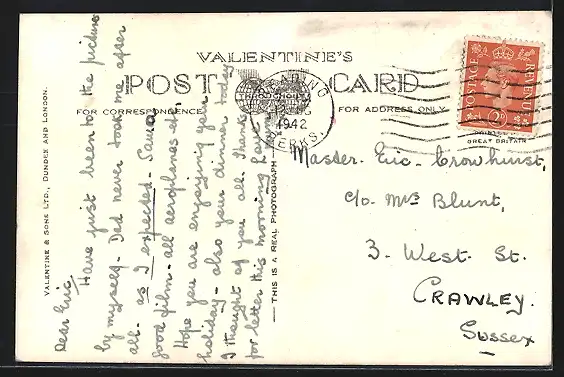 VALENTINE'S
POST CARD
FOR CORRESPONDENCE
FOR ADDRESS ONLY
VALENTINE & SONS LTD., DUNDEE AND LONDON.
THIS IS A REAL PHOTOGRAPH
1942
BERKS.
POSTAGE
REVENUE
GREAT BRITAIN
Dear Eric,
Have just been to the pictures
by myself - Dad never took me after
all - as I expected. Saw a
good film - all aeroplanes etc.
Hope you are enjoying your
holiday - also your dinner today
I thought of you all. Thanks
for letter this morning. Love
Master. Eric. Crowhurst,
c/o. Mrs Blunt,
3. West. St.
CRAWLEY.
Sussex